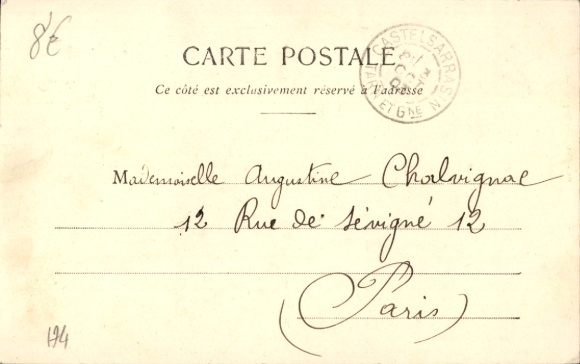 8€
CARTE POSTALE
Ce côté est exclusivement réservé à l'adresse
CASTELSARRASIN
TARN ET GNE
Mademoiselle Augustine Chalvignac
12 Rue de Sévigné 12
(Paris)
194